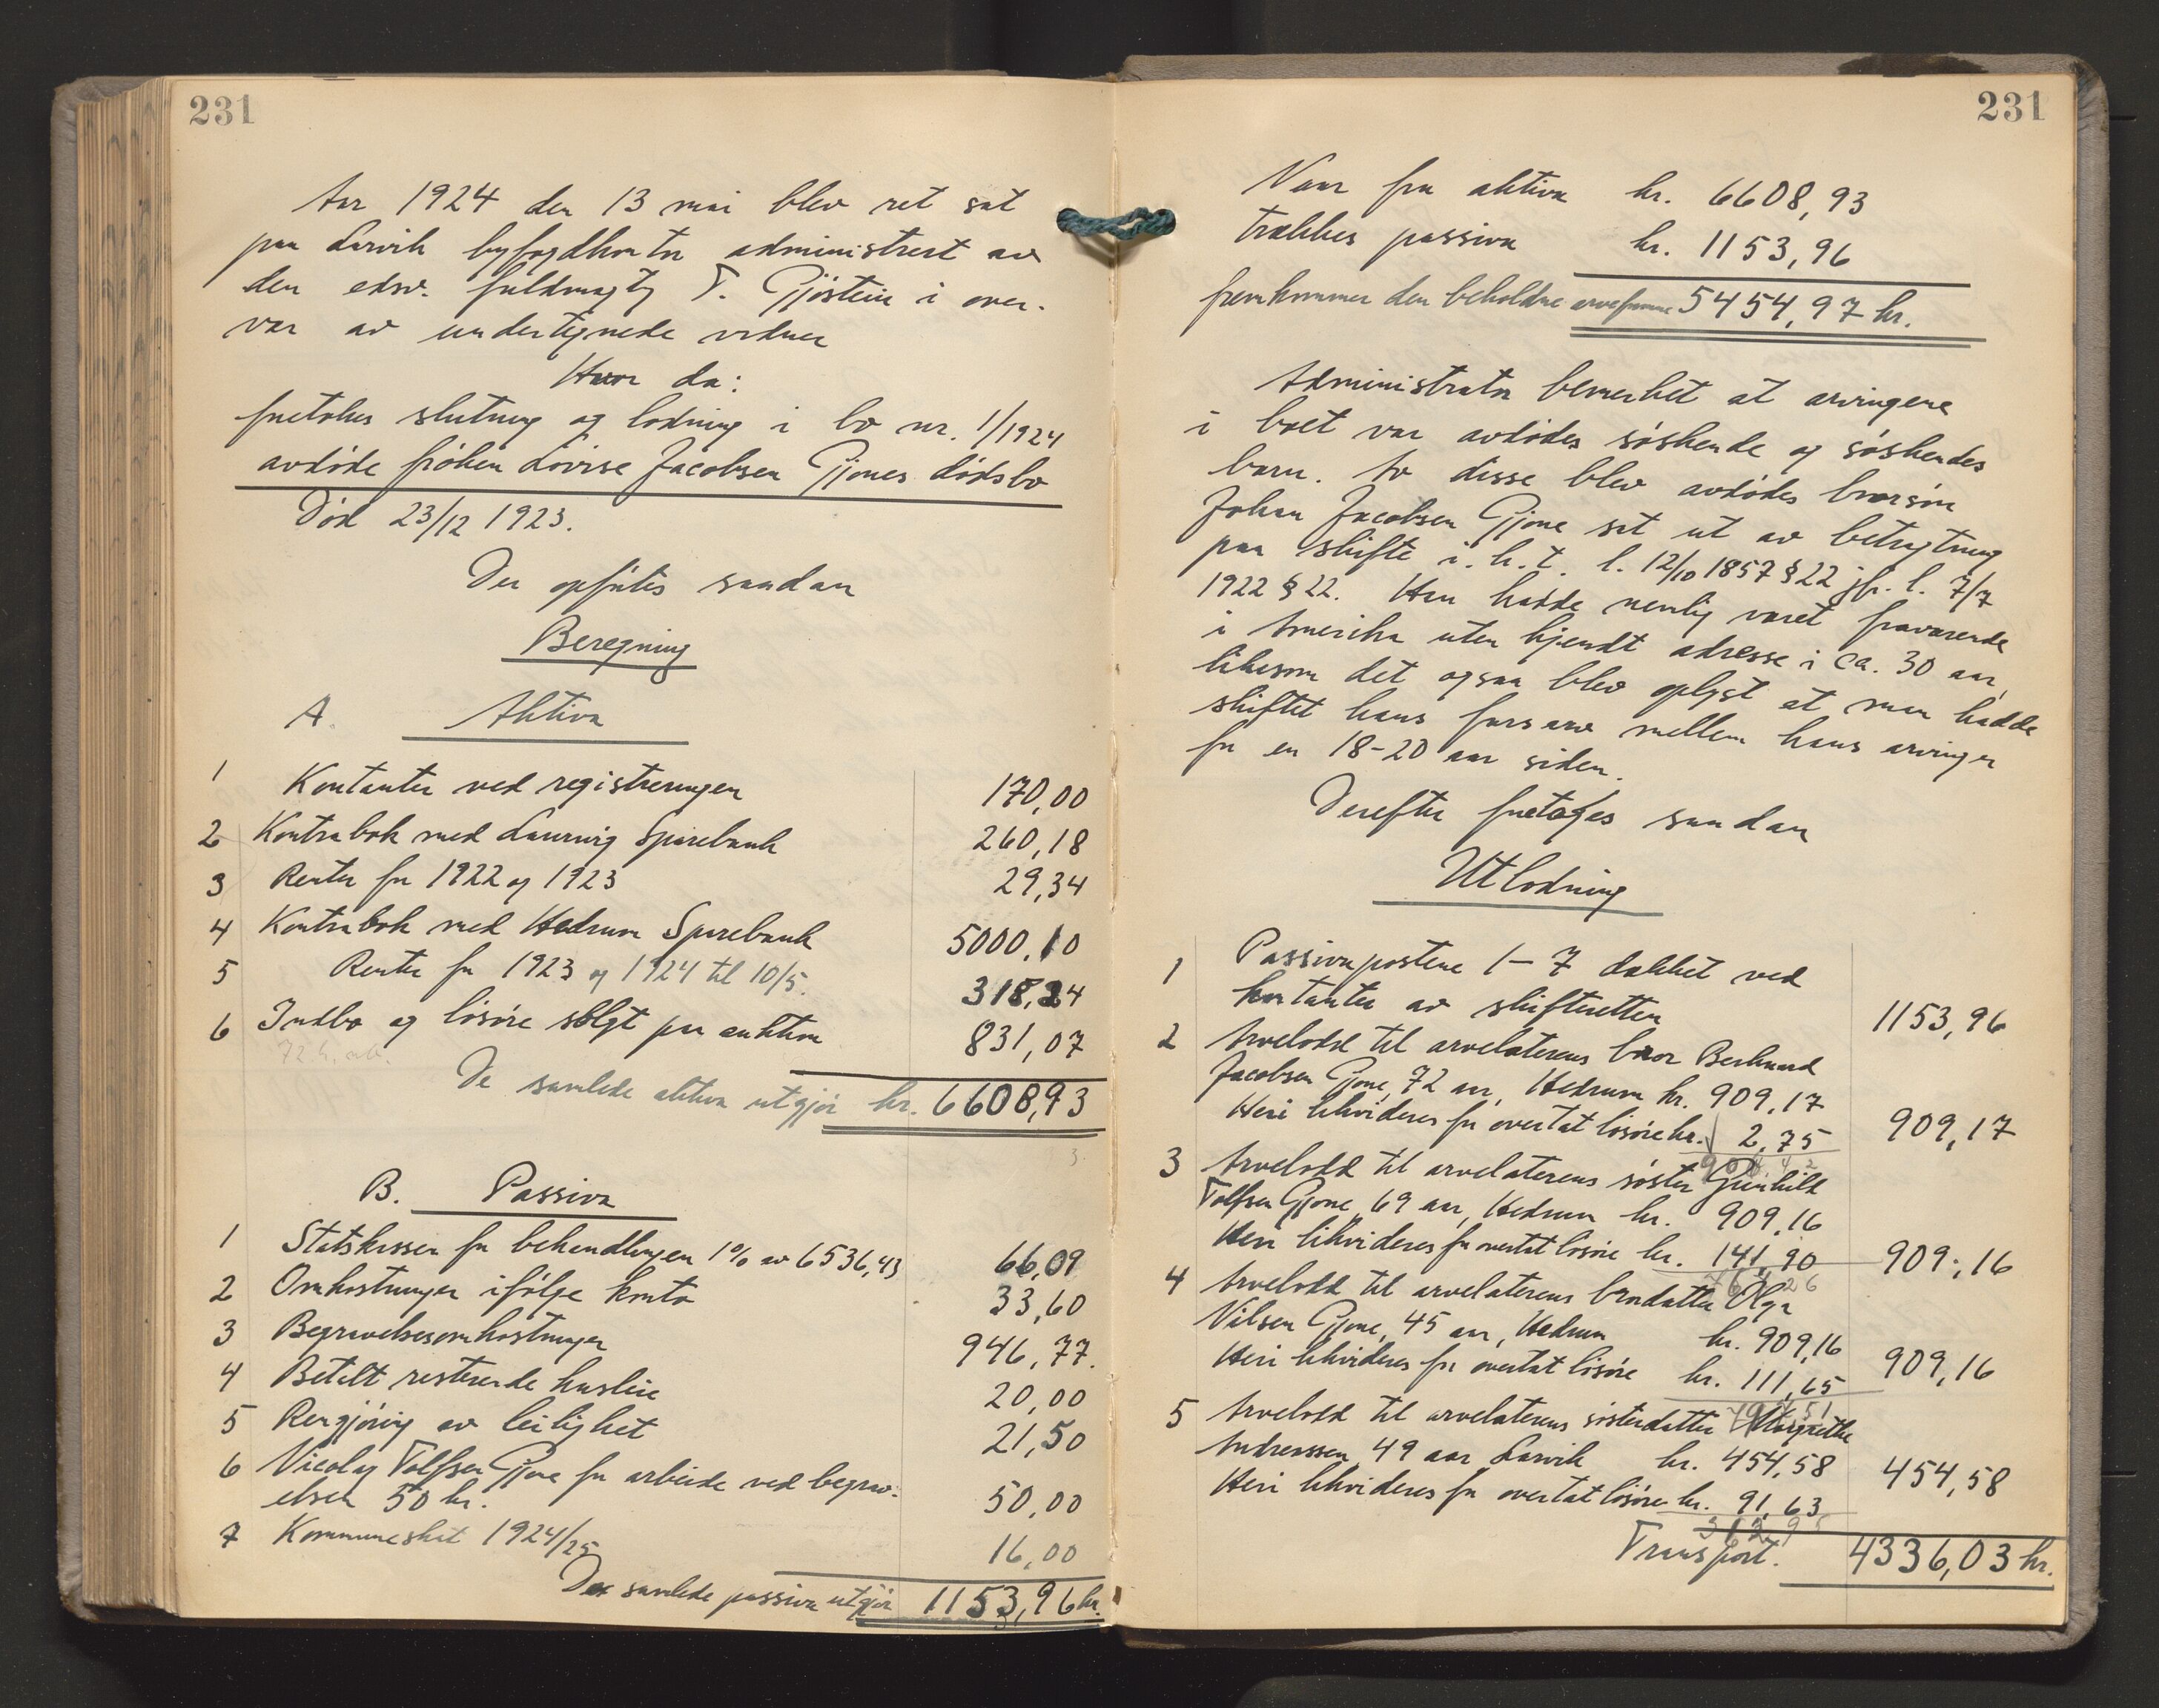 231
Aar 1924 den 13 mai blev ret sat
paa Larvik byfogdkontor administrert av
den edsv. fuldmægtig T. Gjöstein i over-
var av undertegnede vidner
Hvor da:
foretokes slutning og lodning i bo nr. 1/1924
avdöde fröken Lovise Jacobsen Gjones dödsbo
Död 23/12 1923.
Der opförtes saadan
Beregning
A. Aktiva
1 Kontanter ved registreringen 170,00
2 Kontrabok med Laurvig Sparebank 260,18
3 Renter for 1922 og 1923 29,34
4 Kontrabok med Hedrum Sparebank 5000,10
5 Renter for 1923 og 1924 til 10/5. 318,24
6 Indbo og lösöre solgt paa auktion 831,07
De samlede aktiva utgjör kr. 6608,93
B. Passiva
1 Statskassen for behandlingen 1% av 6536,43 66,09
2 Omkostninger ifölge konto 33,60
3 Begravelsesomkostninger 946,77.
4 Betalt resterende husleie 20,00
5 Rengjöring av leilighet 21,50
6 Nicolay Tolfsen Gjone for arbeide ved begrav-
elsen 50 kr. 50,00
7 Kommuneskat 1924/25 16,00
De samlede passiva utgjör 1153,96 kr.
231
Naar fra aktiva kr. 6608,93
trækkes passiva kr. 1153,96
fremkommer den beholdne arvesumme 5454,97 kr.
Administrator bemerket at arvingene
i boet var avdödes söskende og söskendes
barn. Av disse blev avdödes brorsön
Johan Jacobsen Gjone sat ut av betragtning
paa skifte i. h. t. l. 12/10 1857 § 22 jfr. l. 7/7
1922 § 22. Han hadde nemlig været fraværende
i Amerika uten kjendt adresse i ca. 30 aar,
likesom det ogsaa blev oplyst at man hadde
skiftet hans farsarv mellem hans arvinger
for en 18-20 aar siden.
Derefter foretokes saadan
Utlodning
1 Passivapostene 1-7 dækket ved
kontanter av skifteretten 1153,96
2 Arvelodd til arvelaterens bror Bernhard
Jacobsen Gjone, 72 aar, Hedrum kr. 909,17
Heri likvideres for overtat lösöre kr. 2,75 909,17
3 Arvelodd til arvelaterens söster Gunhild
Tolfsen Gjone, 69 aar, Hedrum kr. 909,16
Heri likvideres for overtat lösöre kr. 141,90 909,16
4 Arvelodd til arvelaterens brordatter Olga
Nilsen Gjone, 45 aar, Hedrum kr. 909,16
Heri likvideres for overtat lösöre kr. 111,65 909,16
5 Arvelodd til arvelaterens sösterdatter Margrethe
Andreassen 49 aar Larvik kr. 454,58
Heri likvideres for overtat lösöre kr. 91,63 454,58
Transport. 4336,03 kr.